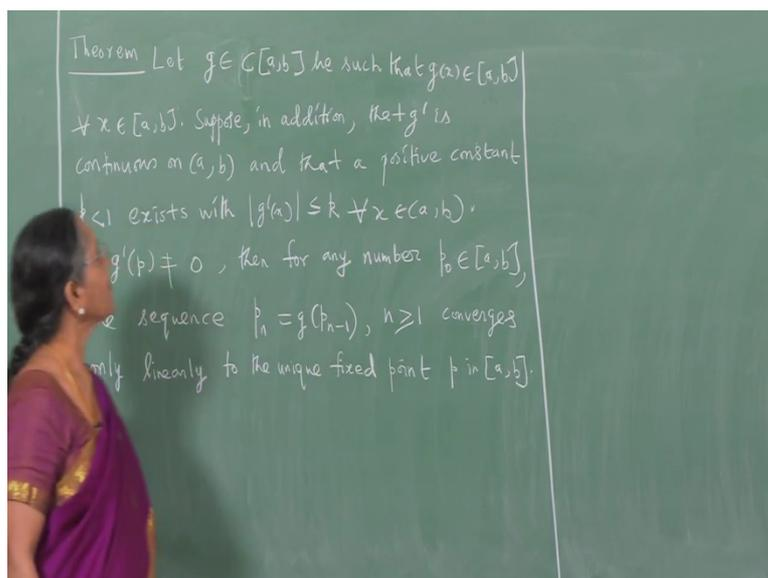 Theorem Let g ∈ C[a,b] be such that g(x) ∈ [a,b]
∀ x ∈ [a,b]. Suppose, in addition, that g' is
continuous on (a,b) and that a positive constant
k<1 exists with |g'(x)| ≤ k ∀ x ∈ (a,b).
g'(p) ≠ 0, then for any number p₀ ∈ [a,b],
sequence pₙ = g(pₙ₋₁), n ≥ 1 converges
only linearly to the unique fixed point p in [a,b].